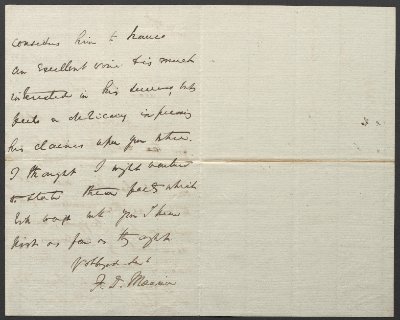 considers him to have
an excellent voice & is much
interested in his success, but
feels a delicacy in pressing
his claims upon you
I thought I might venture
to state these facts which
with you I
just as far as they
F. D. Maurice